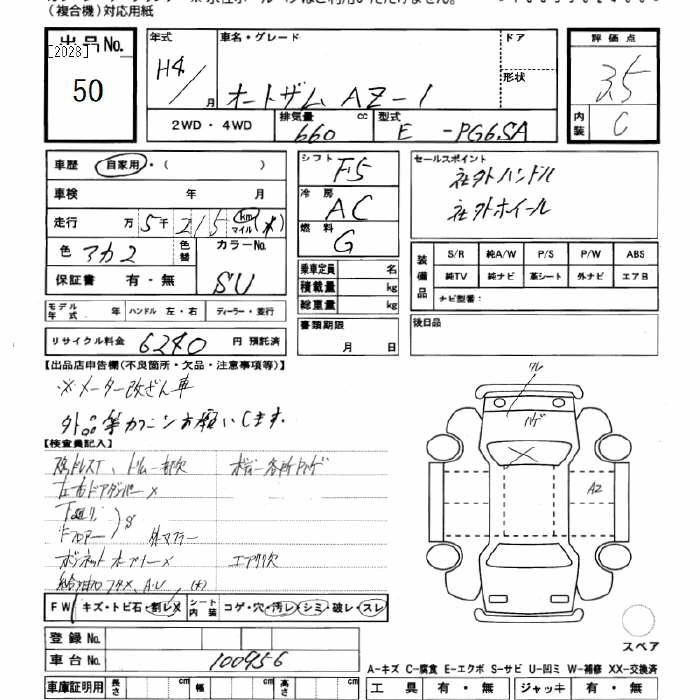 (複合機)対応用紙
出品No.
[2028]
50
年式
H4/
月
車名・グレード
オートザム AZ-1
ドア
形状
2WD・4WD
排気量
cc
660
型式
E -PG6SA
評価点
3.5
内装
C
車歴
自家用・( )
車検
年 月
走行
万 5千 215 km マイル (*)
色
アカ2
色替
カラーNo.
SU
保証書 有・無
シフト
F5
冷房
AC
燃料
G
乗車定員 名
積載量 kg
総重量 kg
セールスポイント
社外ハンドル
社外ホイール
装備品
S/R 純A/W P/S P/W ABS
純TV 純ナビ 革シート 外ナビ エアB
ナビ型番:
モデル年式 年 ハンドル 左・右 ディーラー・並行
リサイクル料金 6240 円 預託済
書類期限
月 日
後日品
【出品店申告欄(不良箇所・欠品・注意事項等)】
※メーター改ざん車
【検査員記入】
左右ドアダンパー×
下廻り
フロアー
S
外マフラー
エアクリ欠
ハゲ
A2
FW キズ・トビ石・割レX シート内装 コゲ・穴・汚レ・シミ・破レ・スレ
スペア
登録No.
車台No. 100956
A-キズ C-腐食 E-エクボ S-サビ U-凹ミ W-補修 XX-交換済
車庫証明用 長さ cm 幅 cm 高さ cm
工具 有・無 ジャッキ 有・無